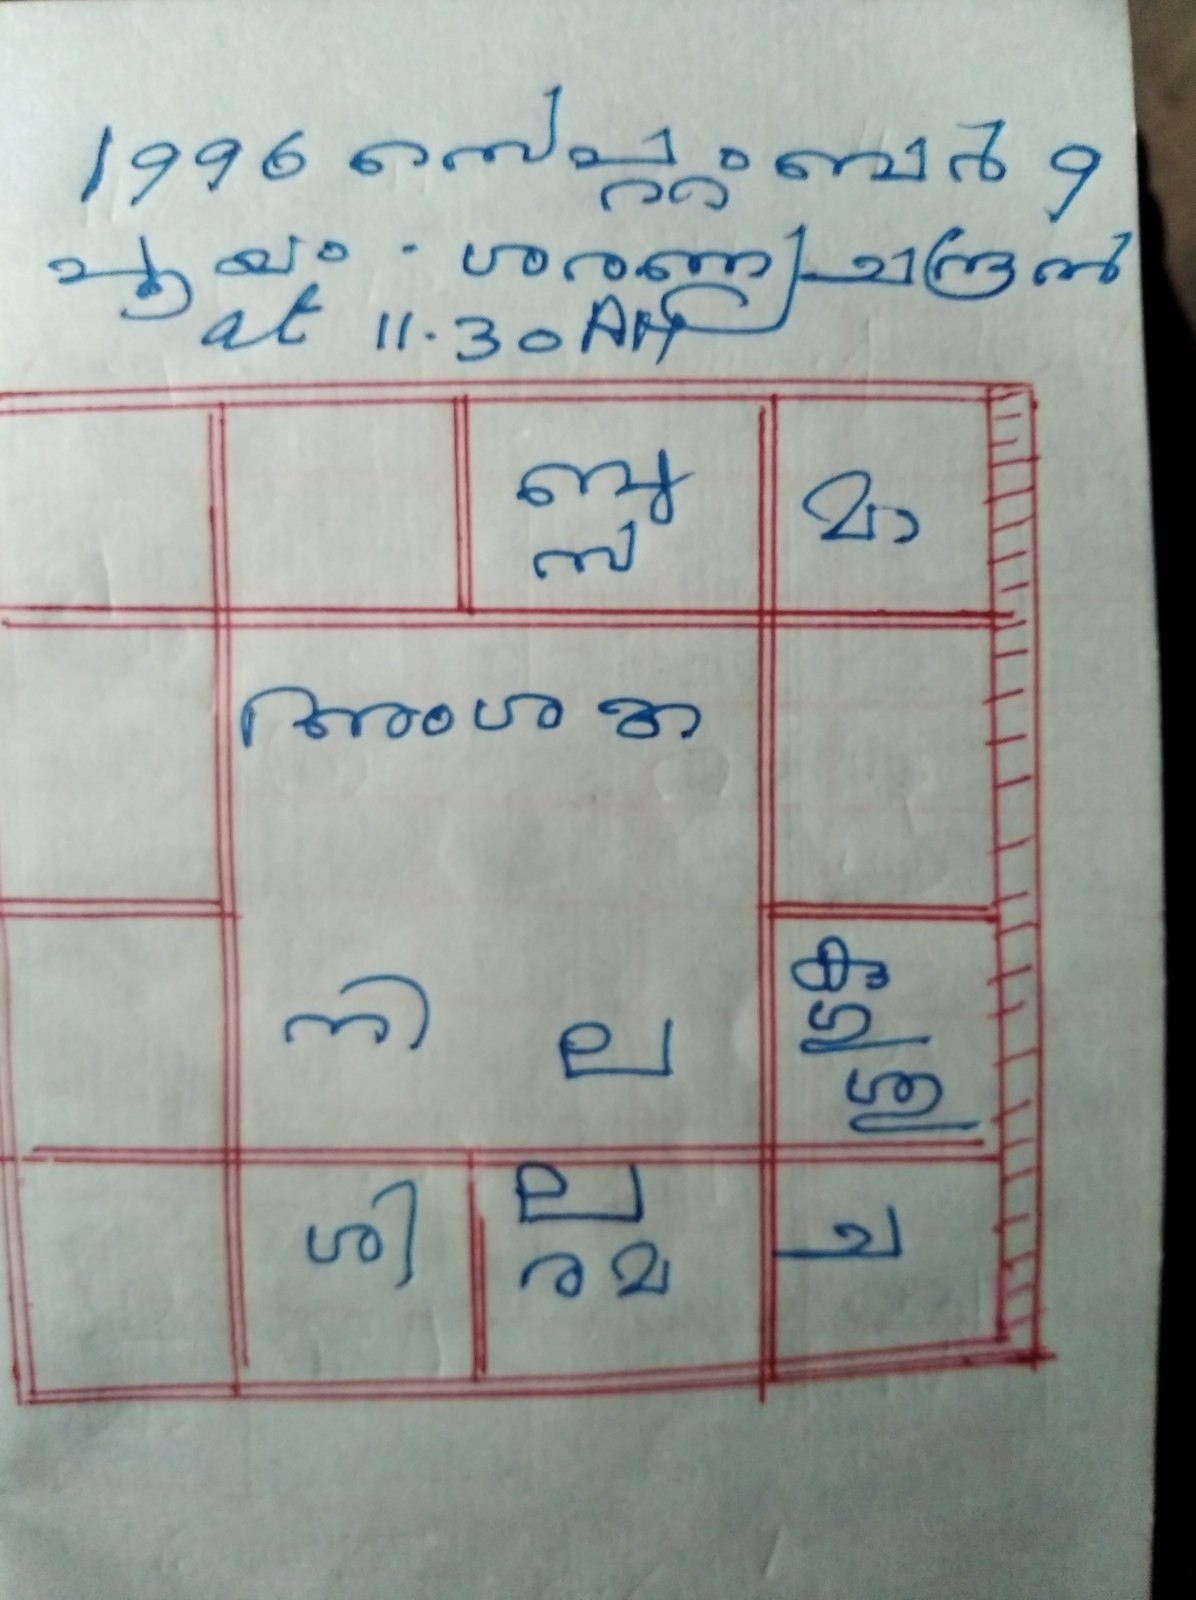 1996 സെപ്റ്റംബർ 9
പൂയം · ശരണ്യ ചന്ദ്രൻ
at 11.30 AM
ബു
സ
മാ
അംശക
കു
ഗു
നി
ല
ശി
ല
ര വ
ച